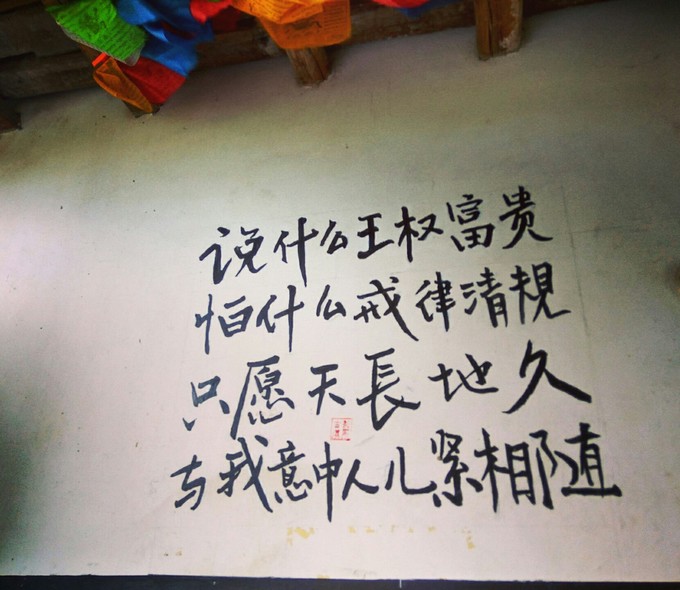 说什么王权富贵
怕什么戒律清規
只愿天長地久
与我意中人儿紧相随